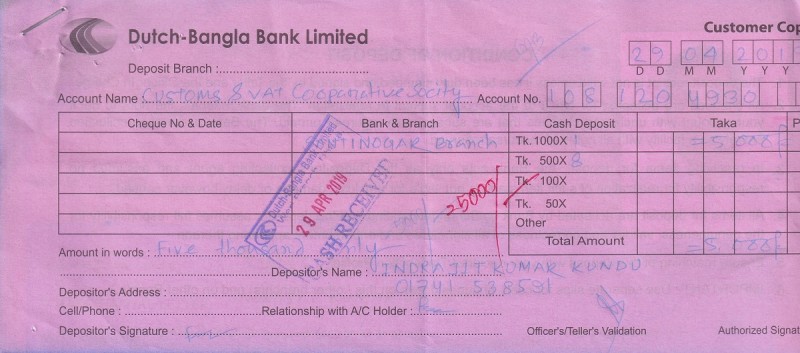 Customer Cop
Dutch-Bangla Bank Limited
29 04 201
D D M M Y Y Y
Deposit Branch :
Account Name : Customs & VAT Cooparative Socity Account No. 108 120 4930
Cheque No & Date Bank & Branch Cash Deposit Taka P
Branch Tk. 1000X 1 =5,000/
Tk. 500X 8
Tk. 100X
Tk. 50X
Other
Total Amount =5,000/
Dutch-Bangla Bank Limited
29 APR 2019
CASH RECEIVED
=5000/
Amount in words : Five thousand only
Depositor's Name : INDRAJIT KUMAR KUNDU
Depositor's Address : 01741-538591
Cell/Phone : Relationship with A/C Holder :
Depositor's Signature : Officer's/Teller's Validation Authorized Signat